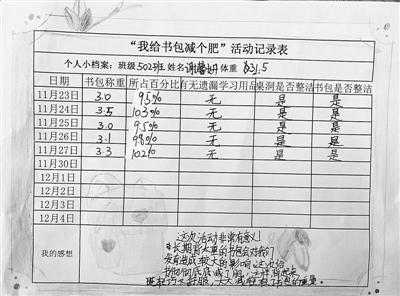 “我给书包减个肥”活动记录表
个人小档案：班级502班 姓名 谢馨妍 体重 31.5
日期 书包称重 所占百分比 有无遗漏学习用品 桌洞是否整洁 书包是否整洁
11月23日 3.0 9.5% 无 是 是
11月24日 3.5 10.3% 无 是 是
11月25日 3.0 9.5% 无 是 是
11月26日 3.1 9.8% 无 是 是
11月27日 3.3 10.2% 无 是 是
11月30日
12月1日
12月2日
12月3日
12月4日
我的感想
这次活动非常有意义!
长期背太重的书包会对我们
发育造成较大的影响,这次给
书包彻彻底底减了肥,